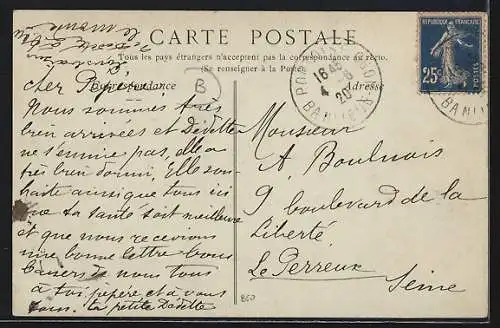 CARTE POSTALE
Tous les pays étrangers n'acceptent pas la correspondance au recto.
(Se renseigner à la Poste)
Correspondance
Adresse
B
cher Pépère
Nous sommes très
bien arrivées et Dédette
ne s'ennuie pas, elle a
très bien dormi, Elle sou-
haite aussi que tous ici
que ta santé soit meilleure
et que nous recevions
une bonne lettre bons
baisers de nous tous
à toi pépère et à vous
tous. ta petite Dédette
Monsieur
A. Boulnois
9 boulevard de la
Liberté
Le Perreux
Seine
860
REPUBLIQUE FRANÇAISE
25c
POSTES
16 45
4 - 8
20
BANLIEUE
BANLI